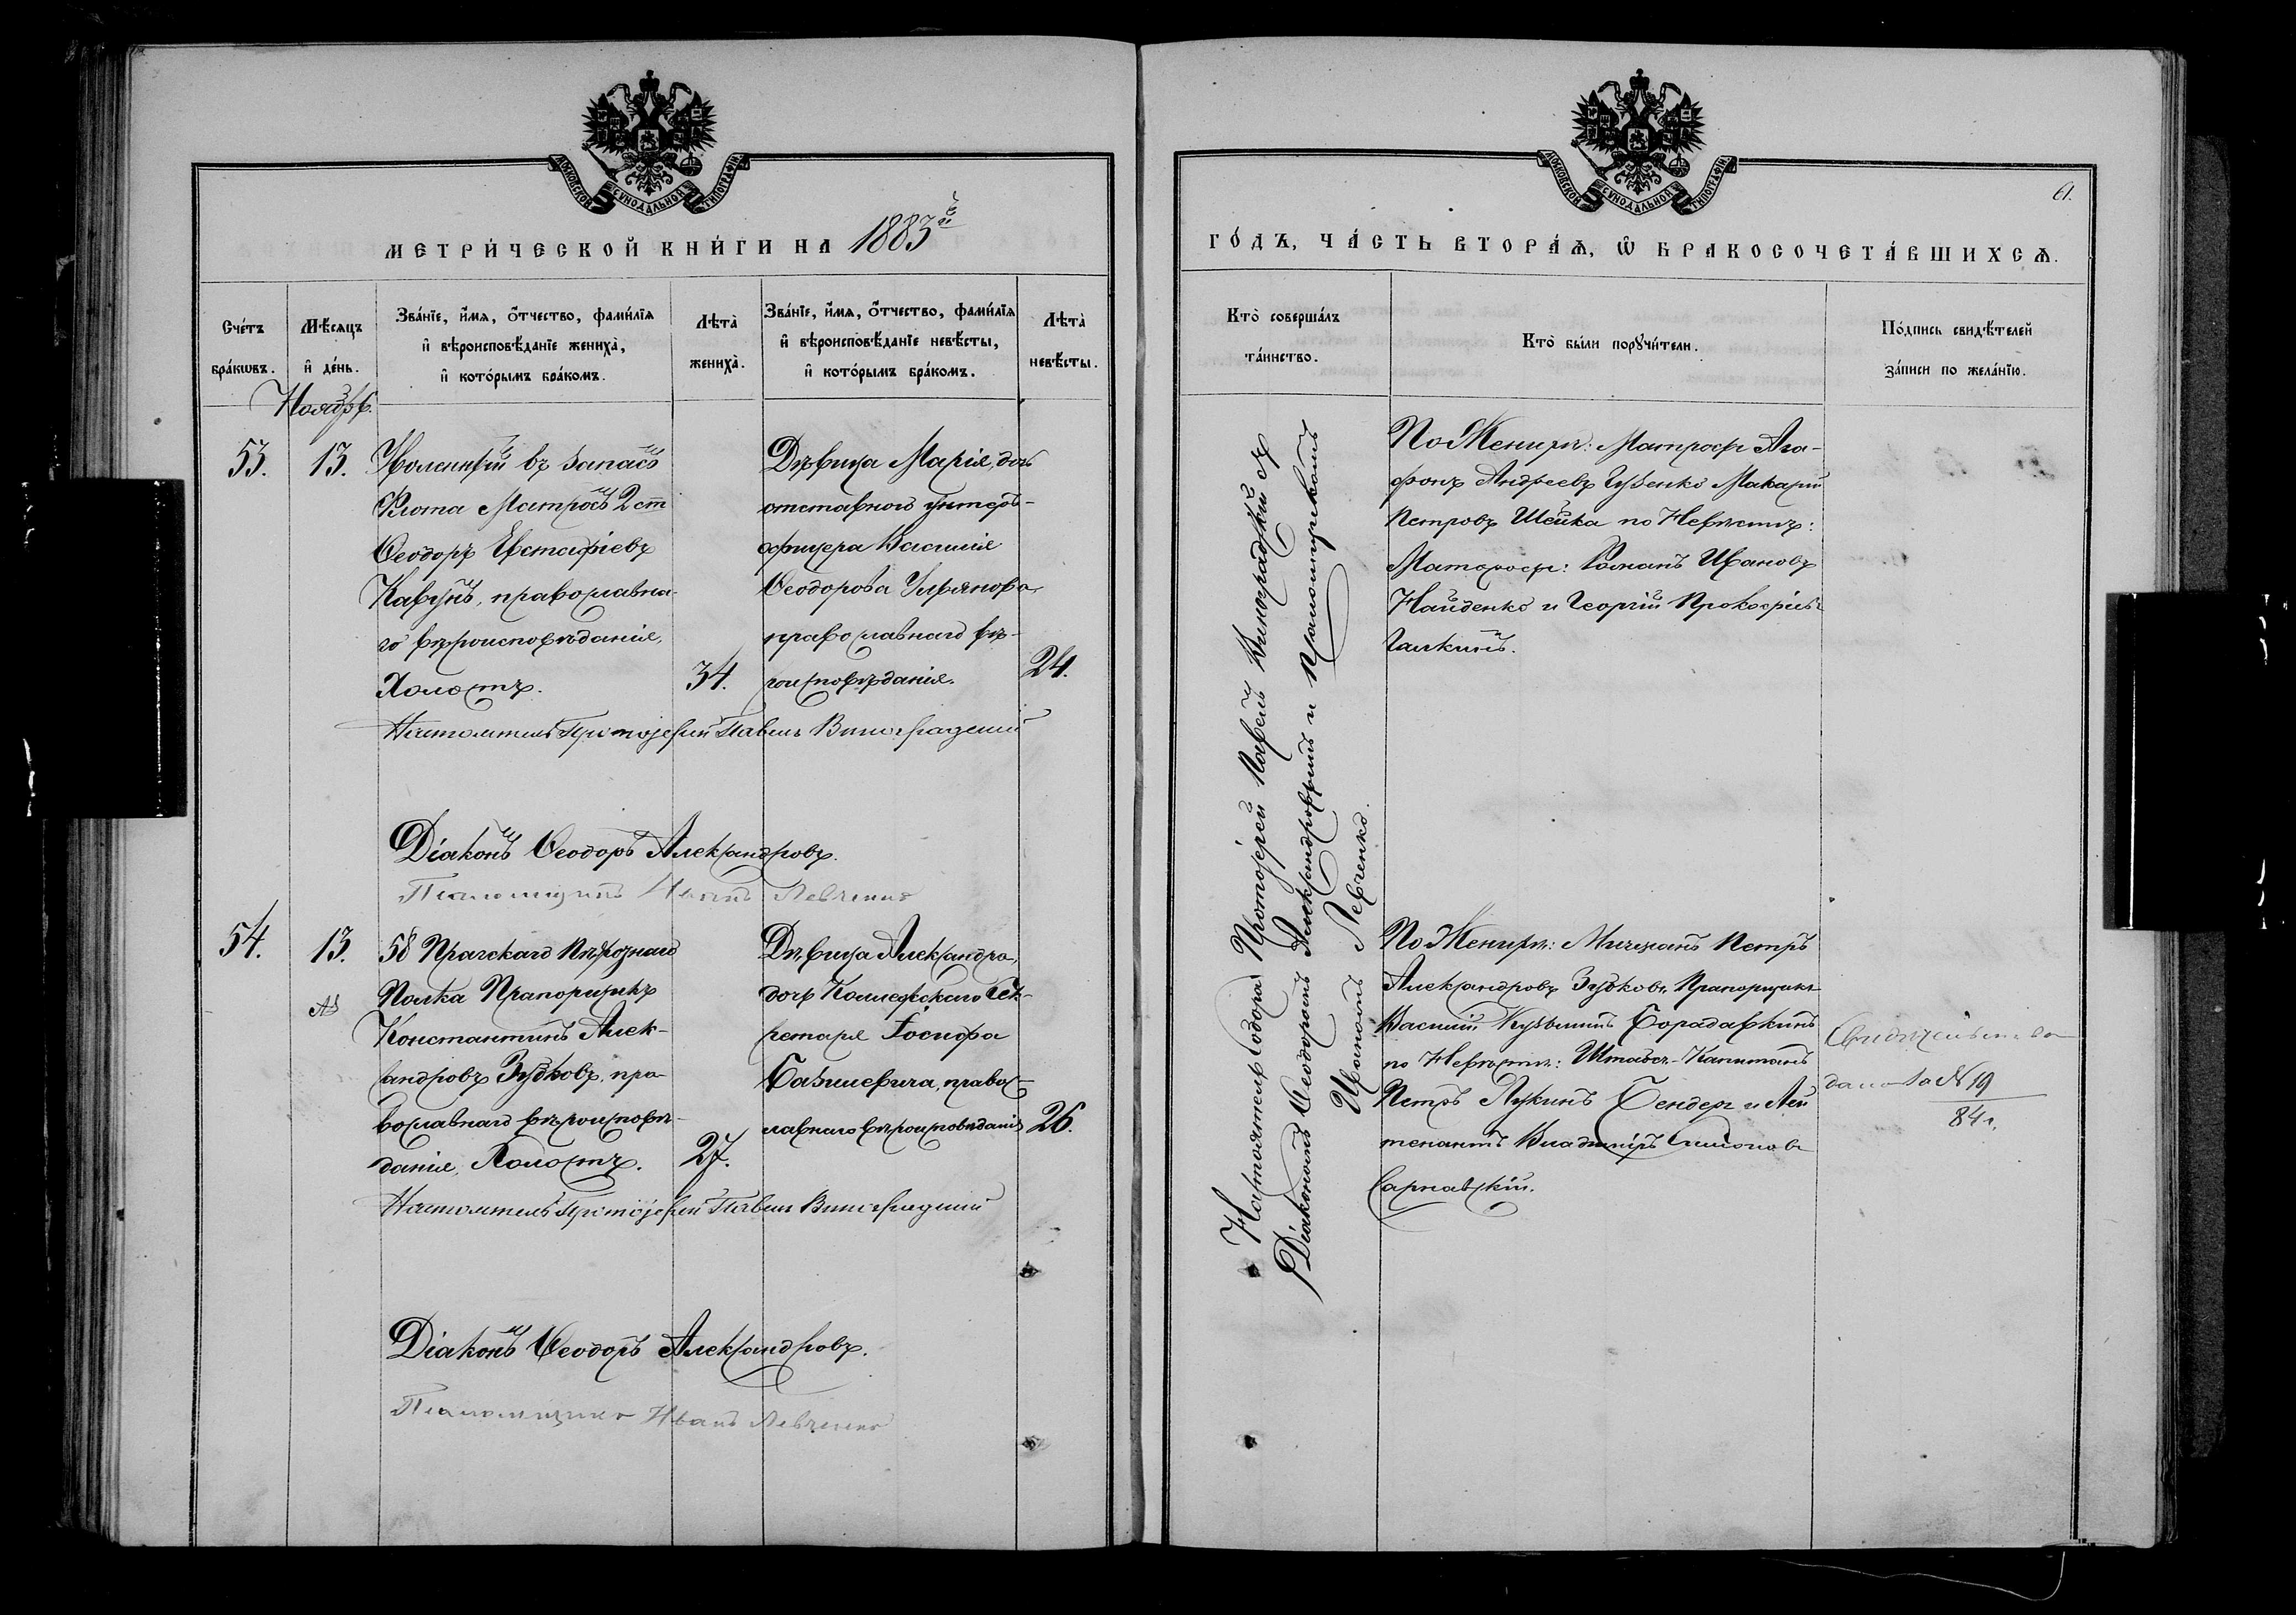 МОСКОВСКОЙ СѴНОДАЛЬНОЙ ТИПОГРАФІИ
МЕТРИ́ЧЕСКОЙ КНИ́ГИ НА 1883й
Сче́тъ бра́кωвъ.
Мѣ́сяцъ и҆ де́нь.
Зва́нїе, и҆́мя, ѻ҆́тчество, фами́лїя
и҆ вѣроисповѣ́данїе женихà,
и҆ кото́рымъ бра́комъ.
Лѣтà женихà.
Зва́нїе, и҆́мя, ѻ҆́тчество, фами́лїя
и҆ вѣроисповѣ́данїе невѣ́сты,
и҆ кото́рымъ бра́комъ.
Лѣтà невѣ́сты.
Ноябрь.
53.
13.
Уволенный въ запасъ
Флота Матросъ 2 ст
Ѳеодоръ Евстафіевъ
Кавунъ, православна-
го вѣроисповѣданія,
Холостъ.
34.
Дѣвица Марія, дочь
отставного унтеръ-
офицера Василія
Ѳеодорова Ульянова,
православнаго вѣ-
роисповѣданія.
24.
Настоятель Протоіерей Павелъ Виноградскій
Діаконъ Ѳеодоръ Александровъ.
Псаломщикъ Иванъ Левченко
54.
13.
58 Прагскаго Пѣхотнаго
Полка Прапорщикъ
Константинъ Алек-
сандровъ Зубковъ, пра-
вославнаго вѣроисповѣ-
данія, Холостъ.
27.
Дѣвица Александра,
дочь Коллежскаго Сек-
ретаря Іосифа
Базилевича, право-
славнаго вѣроисповѣданія
26.
Настоятель Протоіерей Павелъ Виноградскій
Діаконъ Ѳеодоръ Александровъ.
Псаломщикъ Иванъ Левченко
61.
МОСКОВСКОЙ СѴНОДАЛЬНОЙ ТИПОГРАФІИ
ГО́ДЪ, ЧА́СТЬ ВТОРА́Ѧ, Ѽ БРАКОСОЧЕТА́ВШИХСѦ.
Ктò соверша́лъ
та́инство.
Ктò бы́ли порꙋчи́тели.
По́дпись свидѣ́телей
за́писи по жела́нїю.
Настоятель Собора Протоіерей Павелъ Виноградскій съ
Діакономъ Ѳеодоромъ Александровымъ и Псаломщикомъ
Иваномъ Левченко.
По Женихѣ: Матросы Ага-
фонъ Андреевъ Губенко Макарій
Петровъ Шейка по Невѣстѣ:
Матросы: Романъ Ивановъ
Найденко и Георгій Прокофьевъ
Галкинъ.
По Женихѣ: Мичманъ Петръ
Александровъ Зубковъ, Прапорщикъ
Василій Кузьминъ Борадавкинъ
по Невѣстѣ: Штабсъ-Капитанъ
Петръ Лукинъ Бендеръ и Лей
тенантъ Владиміръ Симоновъ
Сарнавскій.
Свидѣтельство
дано за № 19
84 г.